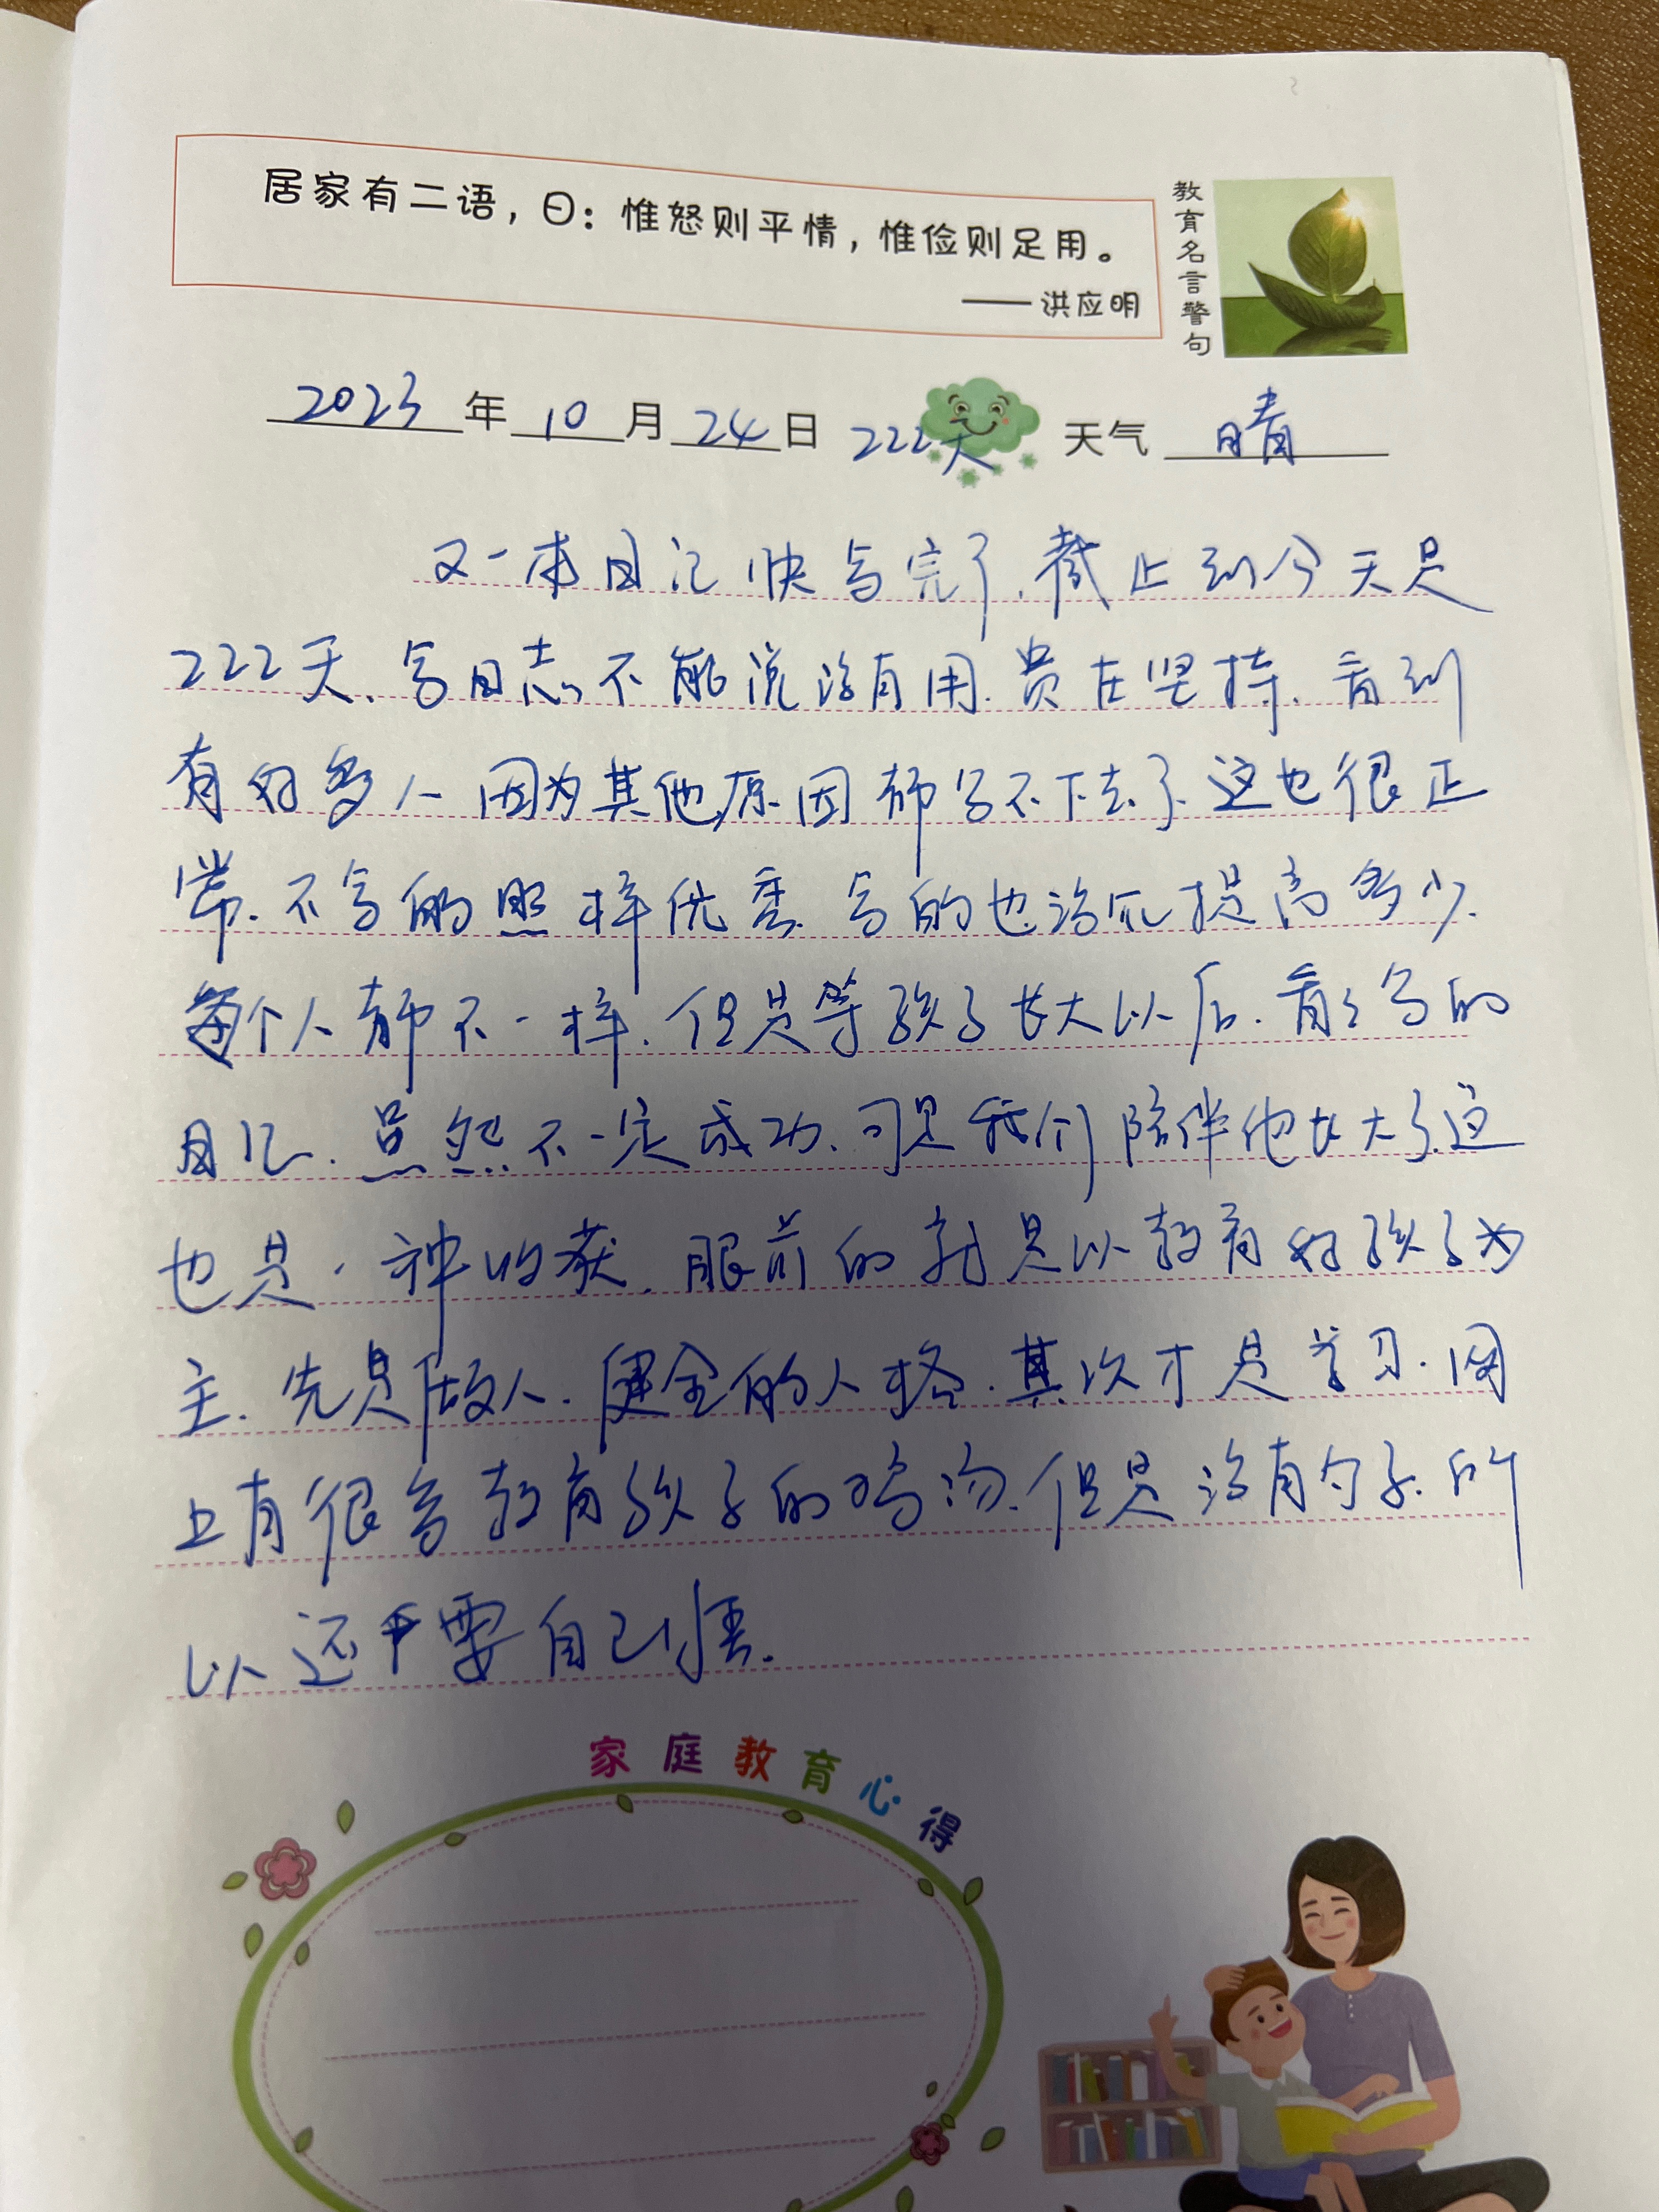 居家有二语，曰：惟怒则平情，惟俭则足用。
——洪应明
教育名言警句
2023年10月24日 222天 天气 晴
又一本日记快写完了.截止到今天是
222天、写日志不能说没有用.贵在坚持.看到
有好多人因为其他原因都写不下去了.这也很正
常.不写的照样优秀.写的也没见提高多少.
每个人都不一样.但是等孩子长大以后.看看写的
日记.虽然不一定成功.可是我们陪伴他长大了.这
也是一种收获.眼前的就是以教育好孩子为
主.先是做人.健全的人格.其次才是学习.网
上有很多教育孩子的鸡汤.但是没有勺子.所
以还要自己悟.
家庭教育心得